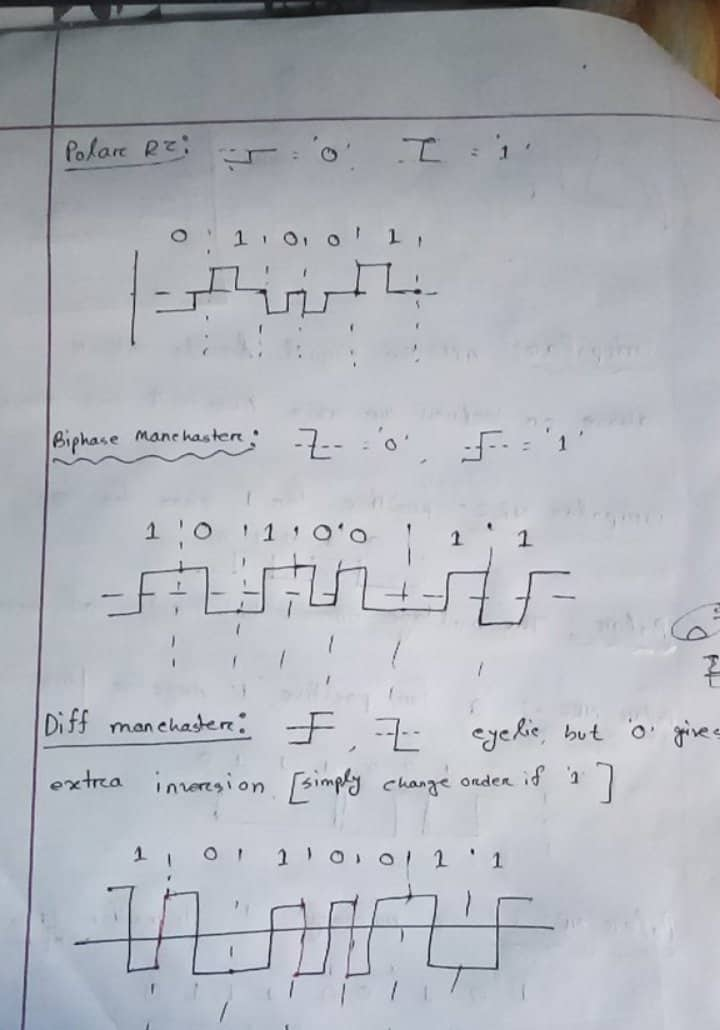 Polare RZ: = '0' = '1'
0 1 0 0 1
Biphase Manchastere: = '0', = '1'
1 0 1 0 0 1 1
Diff manchastere: , cyclic, but '0' gives
extrea inversion [simply change ordere if '1']
1 0 1 0 0 1 1